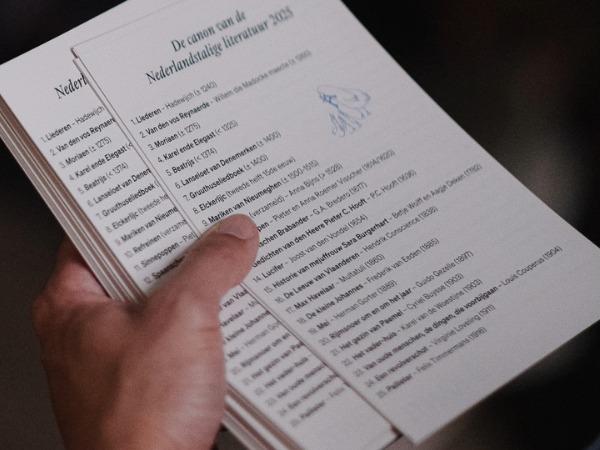 De canon van de
Nederlandstalige literatuur 2025
1. Liederen - Hadewijch (± 1240)
2. Van den vos Reynaerde - Willem die Madocke maecte (± 1260)
3. Moriaen (± 1275)
4. Karel ende Elegast (< 1325)
5. Beatrijs (< 1374)
6. Lanseloet van Denemerken (± 1400)
7. Gruuthusehandschrift (± 1400)
8. Elckerlijc (tweede helft 15de eeuw)
9. Mariken van Nieumeghen (± 1500-1515)
(verzameld) - Anna Bijns (> 1528)
pen - Pieter en Anna Roemer Visscher (1614/1620)
schen Brabander - G.A. Bredero (1617)
edichten van den Heere Pieter C. Hooft - P.C. Hooft (1636)
14. Lucifer - Joost van den Vondel (1654)
15. Historie van mejuffrouw Sara Burgerhart - Betje Wolff en Aagje Deken (1782)
16. De Leeuw van Vlaanderen - Hendrik Conscience (1838)
17. Max Havelaar - Multatuli (1860)
18. De kleine Johannes - Frederik van Eeden (1885)
19. Mei - Herman Gorter (1889)
20. Rijmsnoer om en om het jaar - Guido Gezelle (1897)
21. Het gezin van Paemel - Cyriel Buysse (1903)
22. Het vader-huis - Karel van de Woestijne (1903)
23. Van oude menschen, de dingen, die voorbijgaan - Louis Couperus (1904)
24. Een revolverschot - Virginie Loveling (1911)
25. Pallieter - Felix Timmermans (1916)
Nederl
1. Liederen - Hadewijch
2. Van den vos Reynaer
3. Moriaen (± 1275)
4. Karel ende Elegast (<
5. Beatrijs (< 1374)
6. Lanseloet van Den
7. Gruuthuse
8. Elckerlijc (tweede he
9. Mariken van Nieume
10. Refreinen (verzam
11. Sinnepoppen - Pie